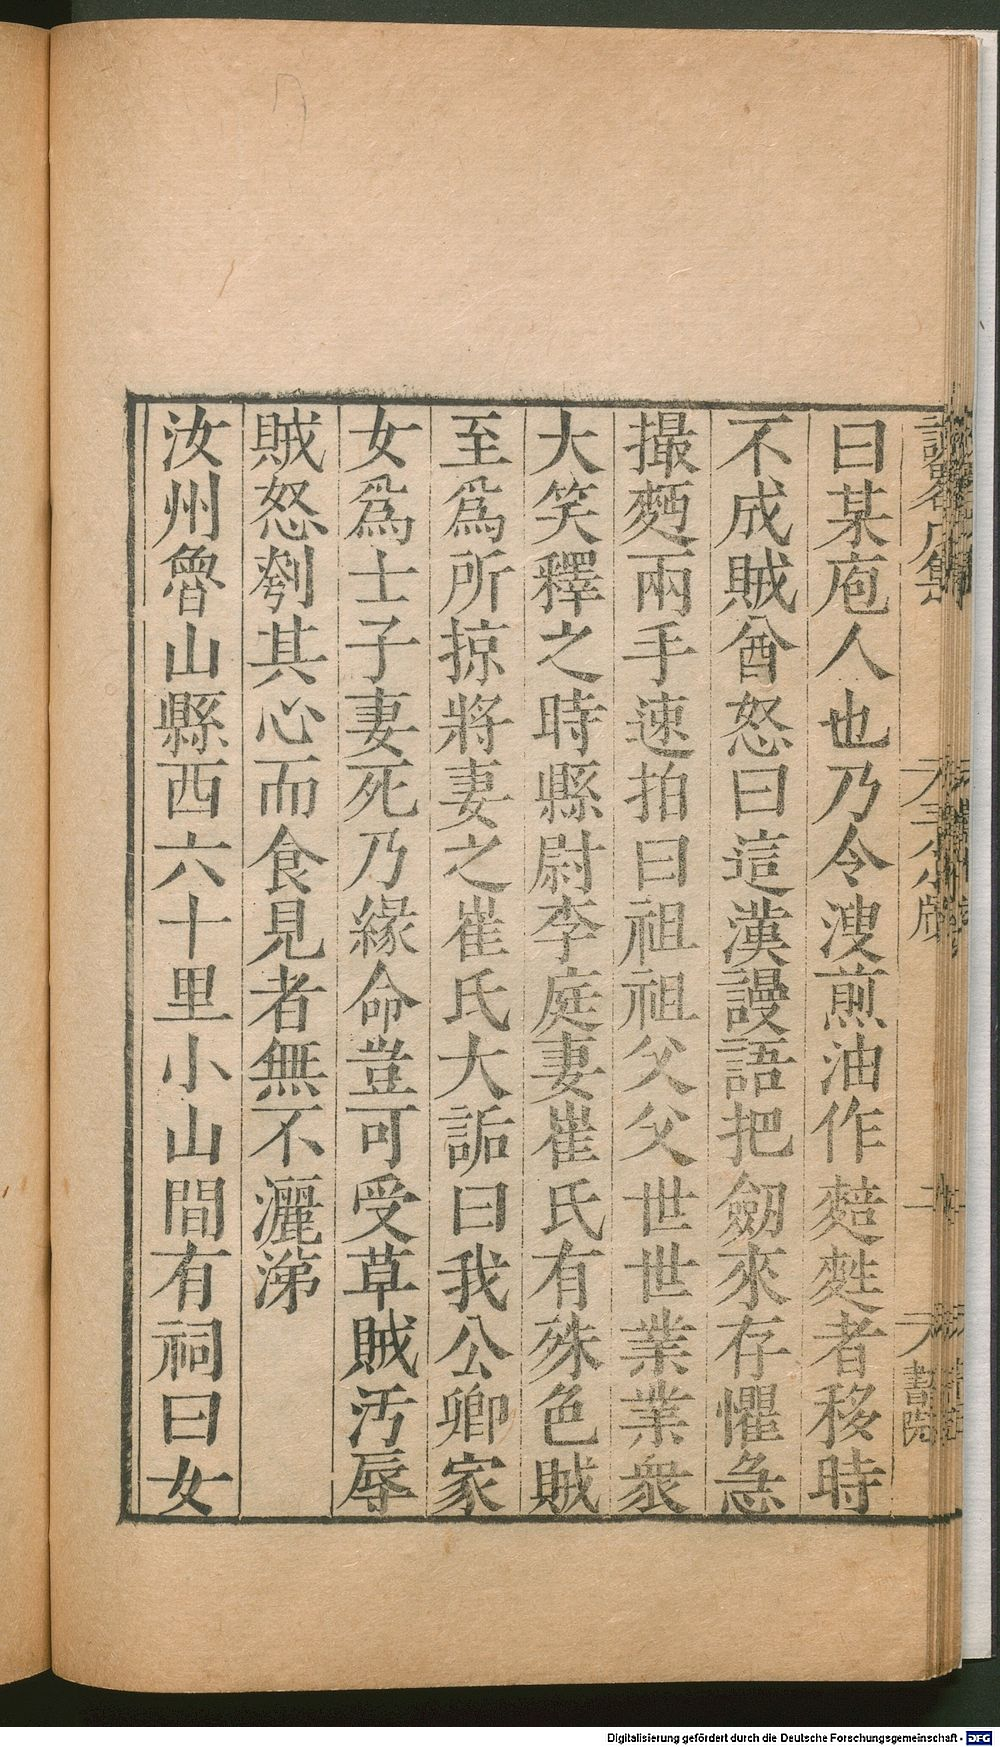 曰某庖人也乃令溲煎油作䴺𪌘者移時
不成賊酋怒曰這漢謾語把劒來存懼急
撮麪兩手速拍曰祖祖父父世世業業衆
大笑釋之時縣尉李庭妻崔氏有殊色賊
至爲所掠將妻之崔氏大詬曰我公卿家
女爲士子妻死乃緣命豈可受草賊汚辱
賊怒刳其心而食見者無不灑涕
汝州魯山縣西六十里小山間有祠曰女
書院
Digitalisierung gefördert durch die Deutsche Forschungsgemeinschaft - DFG